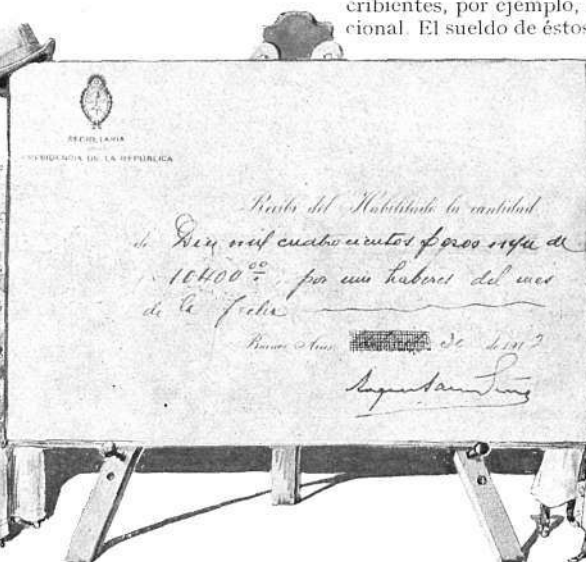 cribientes, por ejemplo,
cional. El sueldo de éstos
SECRETARIA
PRESIDENCIA DE LA REPÚBLICA
Recibí del Habilitado la cantidad
de Diez mil cuatrocientos pesos
10400 por mis haberes del mes
de la fecha
Buenos Aires 30 de 1913